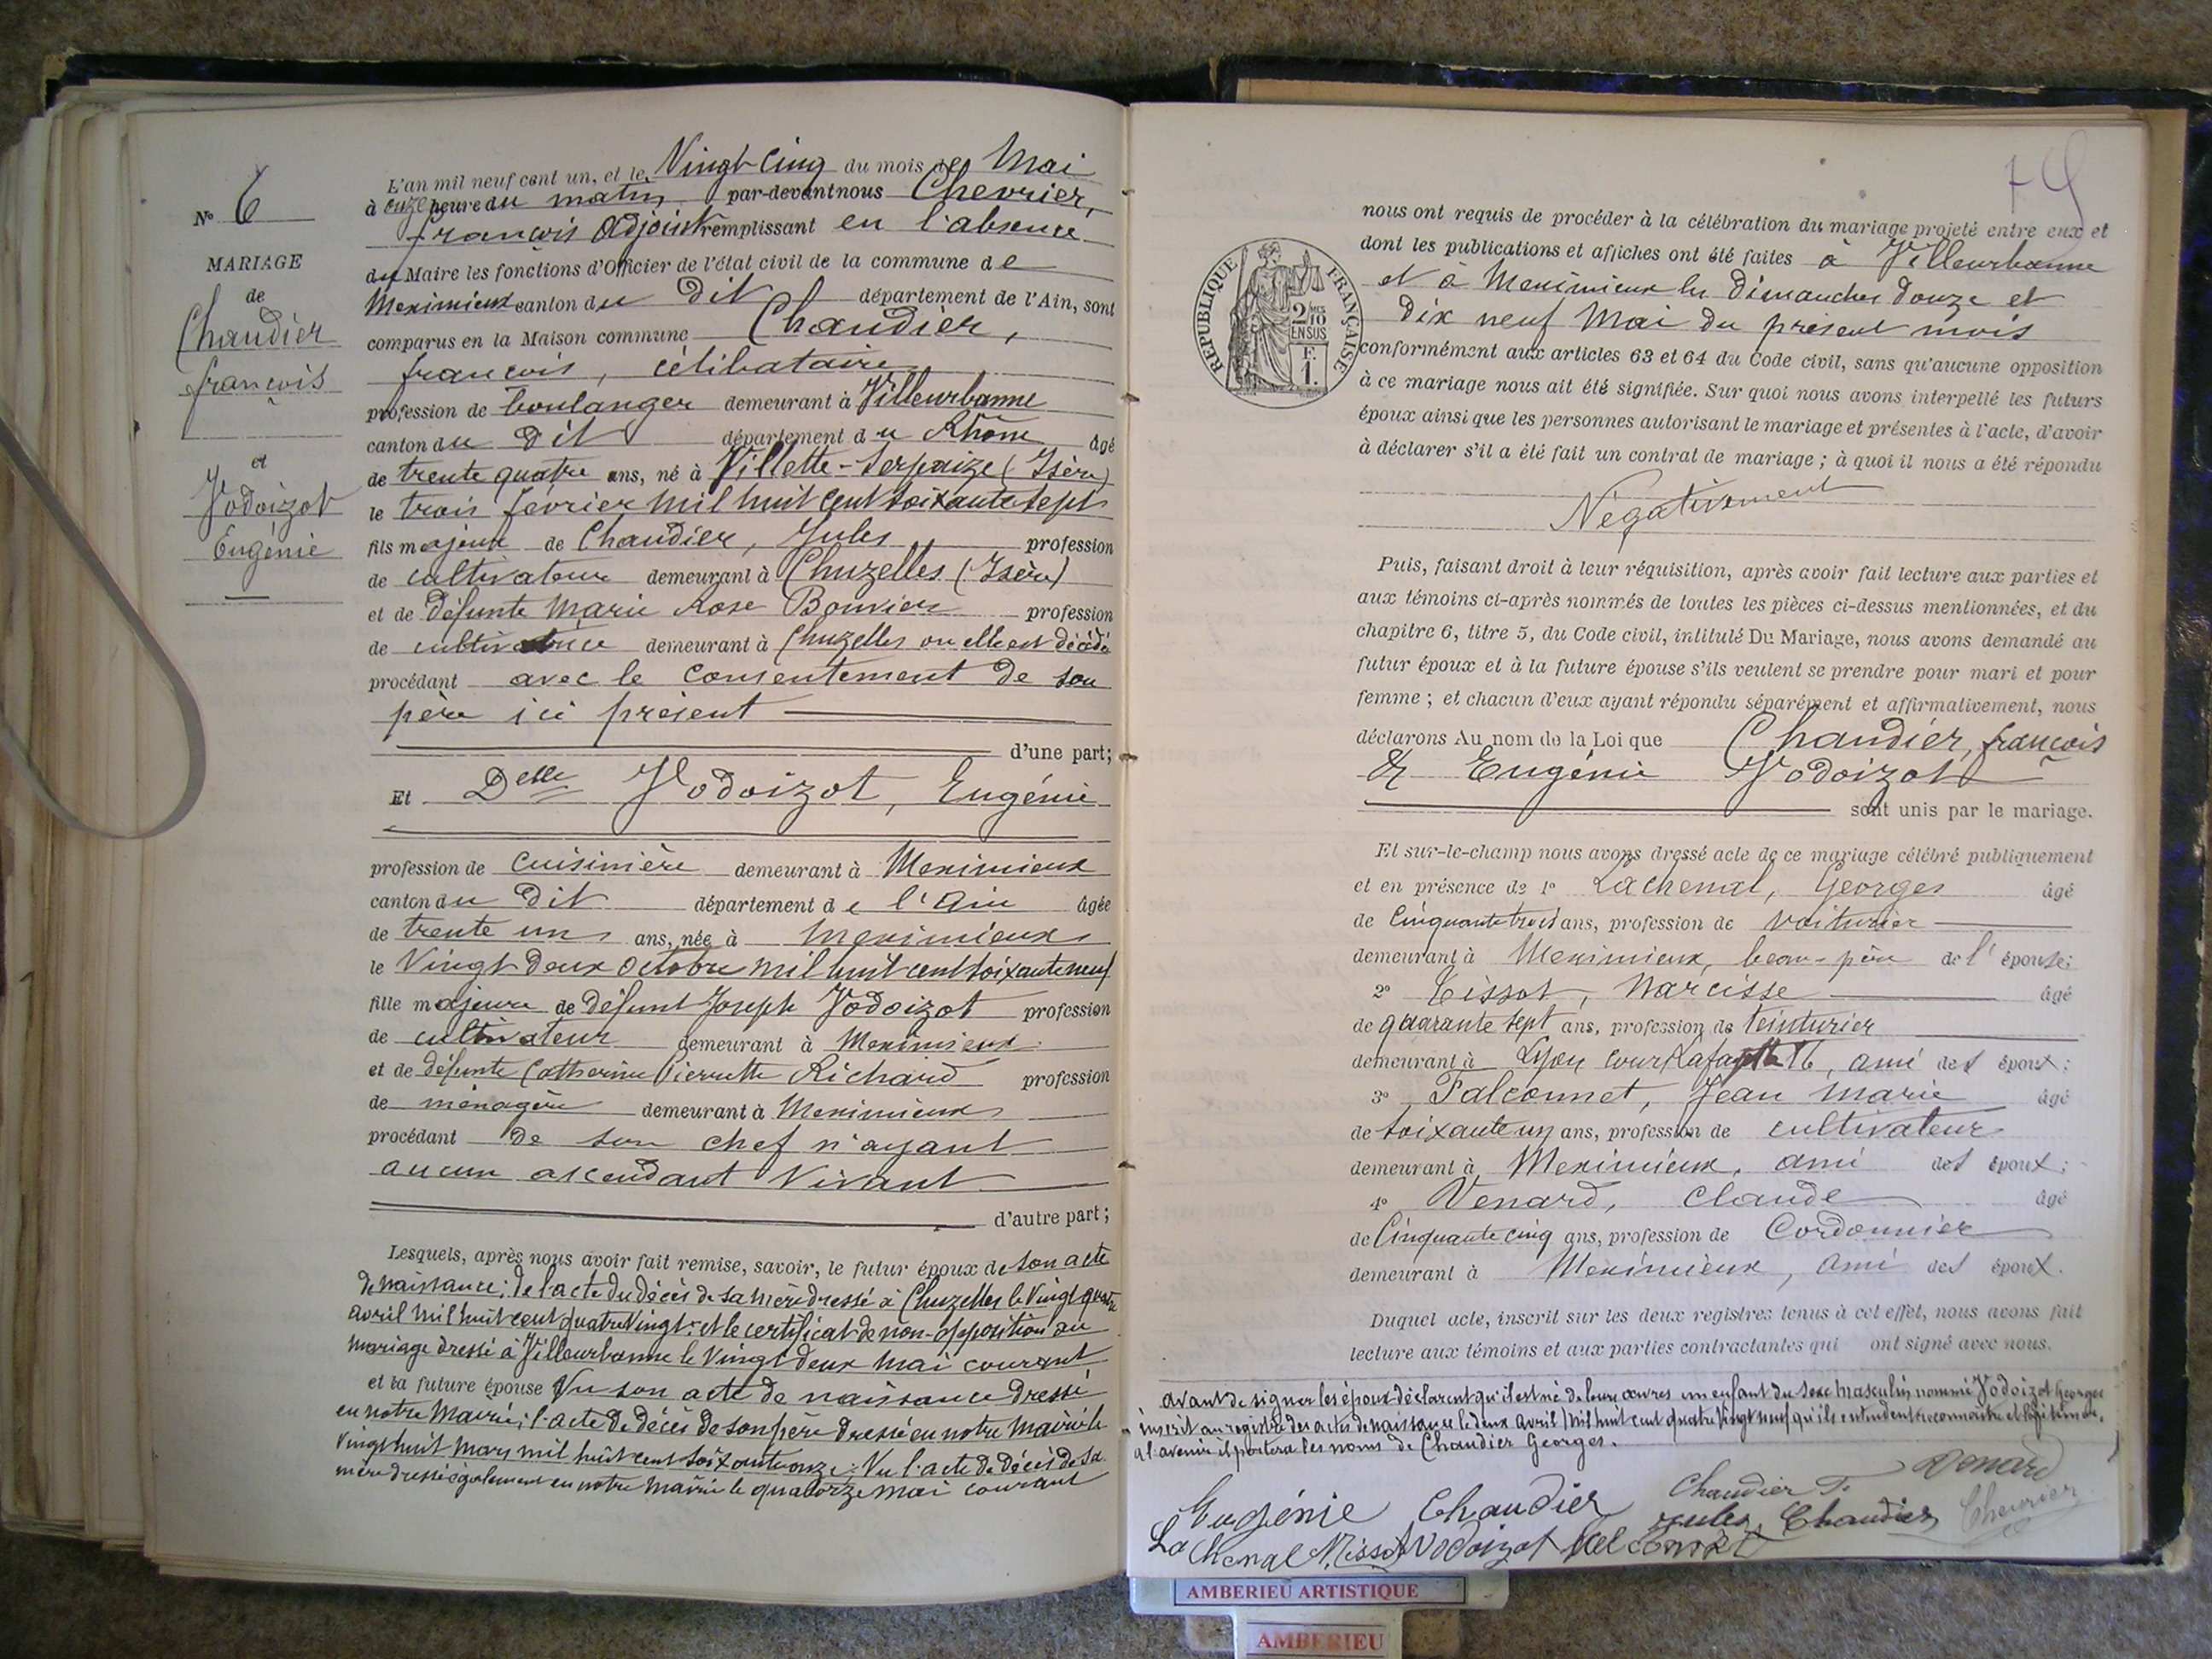 Nº 6
MARIAGE
de
Chaudier
françois
et
Vodoizot
Eugénie
L'an mil neuf cent un, et le Vingt cinq du mois de Mai
à onze heure du matin par-devant nous Chevrier,
françois Adjoint remplissant en l'absence
du Maire les fonctions d'Officier de l'état civil de la commune de
Meximieux canton du dit département de l'Ain, sont
comparus en la Maison commune Chaudier,
françois, célibataire
profession de boulanger demeurant à Villeurbanne
canton du dit département du Rhône âgé
de trente quatre ans, né à Villette-Serpaize (Isère)
le trois février mil huit cent soixante sept
fils majeur de Chaudier, Jules profession
de cultivateur demeurant à Chuzelles (Isère)
et de défunte Marie Rose Bouvier profession
de cultivatrice demeurant à Chuzelles ou elle est décédé
procédant avec le consentement de son
père ici présent
d'une part;
Et Delle Vodoizot, Eugénie
profession de cuisinière demeurant à Meximieux
canton du dit département de l'Ain âgée
de trente un ans, née à Meximieux
le Vingt deux octobre mil huit cent soixante neuf
fille majeure de défunt Joseph Vodoizot profession
de cultivateur demeurant à Meximieux
et de défunte Catherine Pierrette Richard profession
de ménagère demeurant à Meximieux
procédant de son chef n'ayant
aucun ascendant Vivant
d'autre part;
Lesquels, après nous avoir fait remise, savoir, le futur époux de son acte
de naissance; de l'acte du décès de sa mère dressé à Chuzelles le Vingt quatre
avril mil huit cent quatre Vingt; et le certificat de non-opposition au
mariage dressé à Villeurbanne le Vingt deux mai courant
et la future épouse Vu son acte de naissance dressé
en notre Mairie; l'acte de décès de son père dressé en notre mairie le
Vingt huit Mars mil huit cent soixante onze; Vu l'acte de décès de sa
mère dressé également en notre Mairie le quatorze mai courant
nous ont requis de procéder à la célébration du mariage projeté entre eux et
dont les publications et affiches ont été faites à Villeurbanne
et à Meximieux les Dimanches Douze et
Dix neuf Mai du présent mois
RÉPUBLIQUE FRANÇAISE
2 MES
10
EN SUS
F.
1.
conformément aux articles 63 et 64 du Code civil, sans qu'aucune opposition
à ce mariage nous ait été signifiée. Sur quoi nous avons interpellé les futurs
époux ainsi que les personnes autorisant le mariage et présentes à l'acte, d'avoir
à déclarer s'il a été fait un contrat de mariage; à quoi il nous a été répondu
Négativement
Puis, faisant droit à leur réquisition, après avoir fait lecture aux parties et
aux témoins ci-après nommés de toutes les pièces ci-dessus mentionnées, et du
chapitre 6, titre 5, du Code civil, intitulé Du Mariage, nous avons demandé au
futur époux et à la future épouse s'ils veulent se prendre pour mari et pour
femme; et chacun d'eux ayant répondu séparément et affirmativement, nous
déclarons Au nom de la Loi que Chaudier, françois
& Eugénie Vodoizot
sont unis par le mariage.
Et sur-le-champ nous avons dressé acte de ce mariage célébré publiquement
et en présence de 1º Lachenal, Georges âgé
de Cinquante trois ans, profession de voiturier
demeurant à Meximieux, beau-père de l'épouse;
2º Tissot, Narcisse âgé
de quarante sept ans, profession de teinturier
demeurant à Lyon cours Lafayette 86, ami des époux;
3º Falconnet, Jean Marie âgé
de soixante un ans, profession de cultivateur
demeurant à Meximieux, ami des époux;
4º Venard, Claude âgé
de Cinquante cinq ans, profession de Cordonnier
demeurant à Meximieux, ami des époux.
Duquel acte, inscrit sur les deux registres tenus à cet effet, nous avons fait
lecture aux témoins et aux parties contractantes qui ont signé avec nous.
avant de signer les époux déclarent qu'il est né de leurs œuvres un enfant du sexe masculin nommé Vodoizot Georges
inscrit au registre des actes de naissance le deux avril mil huit cent quatre Vingt neuf qu'ils entendent reconnaitre et légitimer.
à l'avenir il portera les noms de Chaudier Georges.
Eugénie Chaudier Chaudier F. Venard
Lachenal N. Tissot Vodoizot Falconnet Jules Chaudier Chevrier
AMBERIEU ARTISTIQUE
AMBERIEU